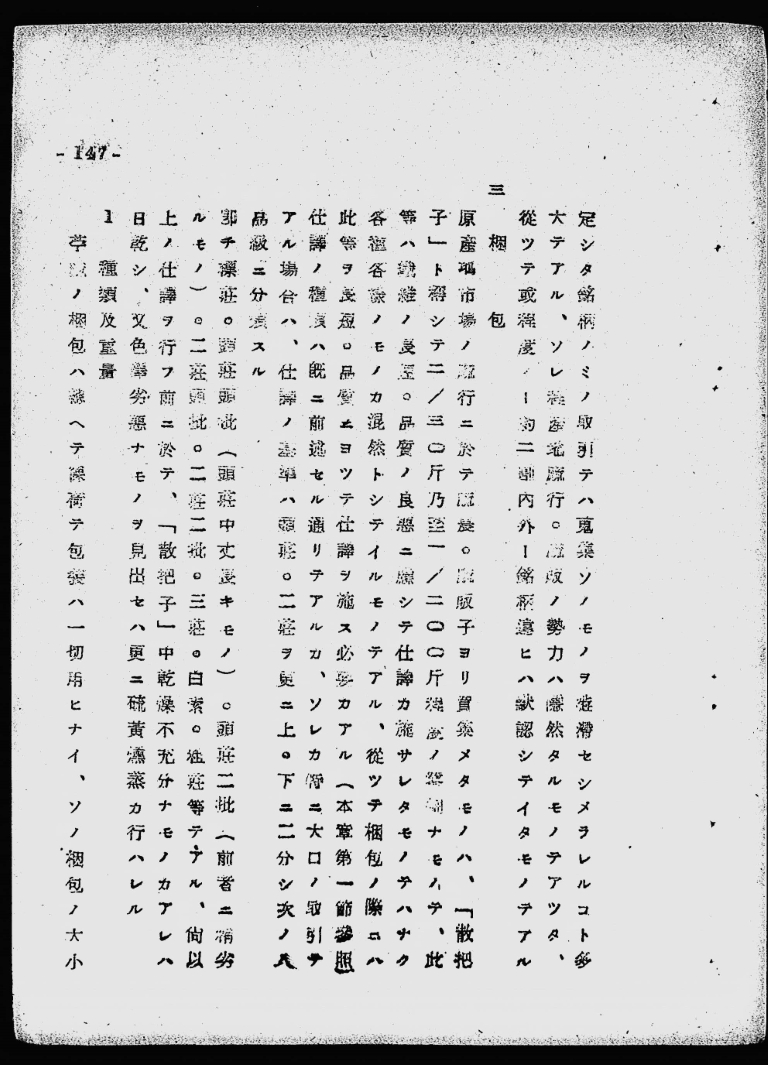 -147-
定シタ銘柄ノミノ取引テハ蒐集ソノモノヲ澁滞セシメラレルコト多
大テアル、ソレ 産地流行。 版ノ勢力ハ隠然タルモノテアツタ、
從ツテ或程度ノー約二割內外ー銘柄違ヒハ默認シテイタモノテアル
三 梱包
原産地市場ノ流行ニ於テ 農。 販子ヨリ買集メタモノハ、「散把
子」ト稱シテ二/三〇斤乃至一/二〇〇斤程度ノ ナモノテ、此
等ハ纖維ノ長短。品質ノ良惡ニ應シテ仕譯カ施サレタモノテハナク
各種各樣ノモノカ混然トシテイルモノテアル、從ツテ梱包ノ際ニハ
此等ヲ長短。品質ニヨツテ仕譯ヲ施ス必要カアル（本章第一節參照
仕譯ノ種類ハ既ニ前述セル通リテアルカ、ソレカ特ニ大口ノ取引テ
アル場合ハ、仕譯ノ基準ハ頭莊。二莊ヲ更ニ上。下ニ二分シ次ノ八
品級ニ分類スル
郭チ標莊。頭莊頭批（頭莊中丈長キモノ）。頭莊二批（前者ニ稍劣
ルモノ）。二莊頭批。二莊二批。三莊。白素。 莊等テアル、尙以
上ノ仕譯ヲ行フ前ニ於テ、「散把子」中乾燥不充分ナモノカアレハ
日乾シ、又色澤劣惡ナモノヲ見出セハ更ニ硫黃燻蒸カ行ハレル
1 種類及重量
苧 ノ梱包ハ總ヘテ裸荷テ包裝ハ一切用ヒナイ、ソノ梱包ノ大小